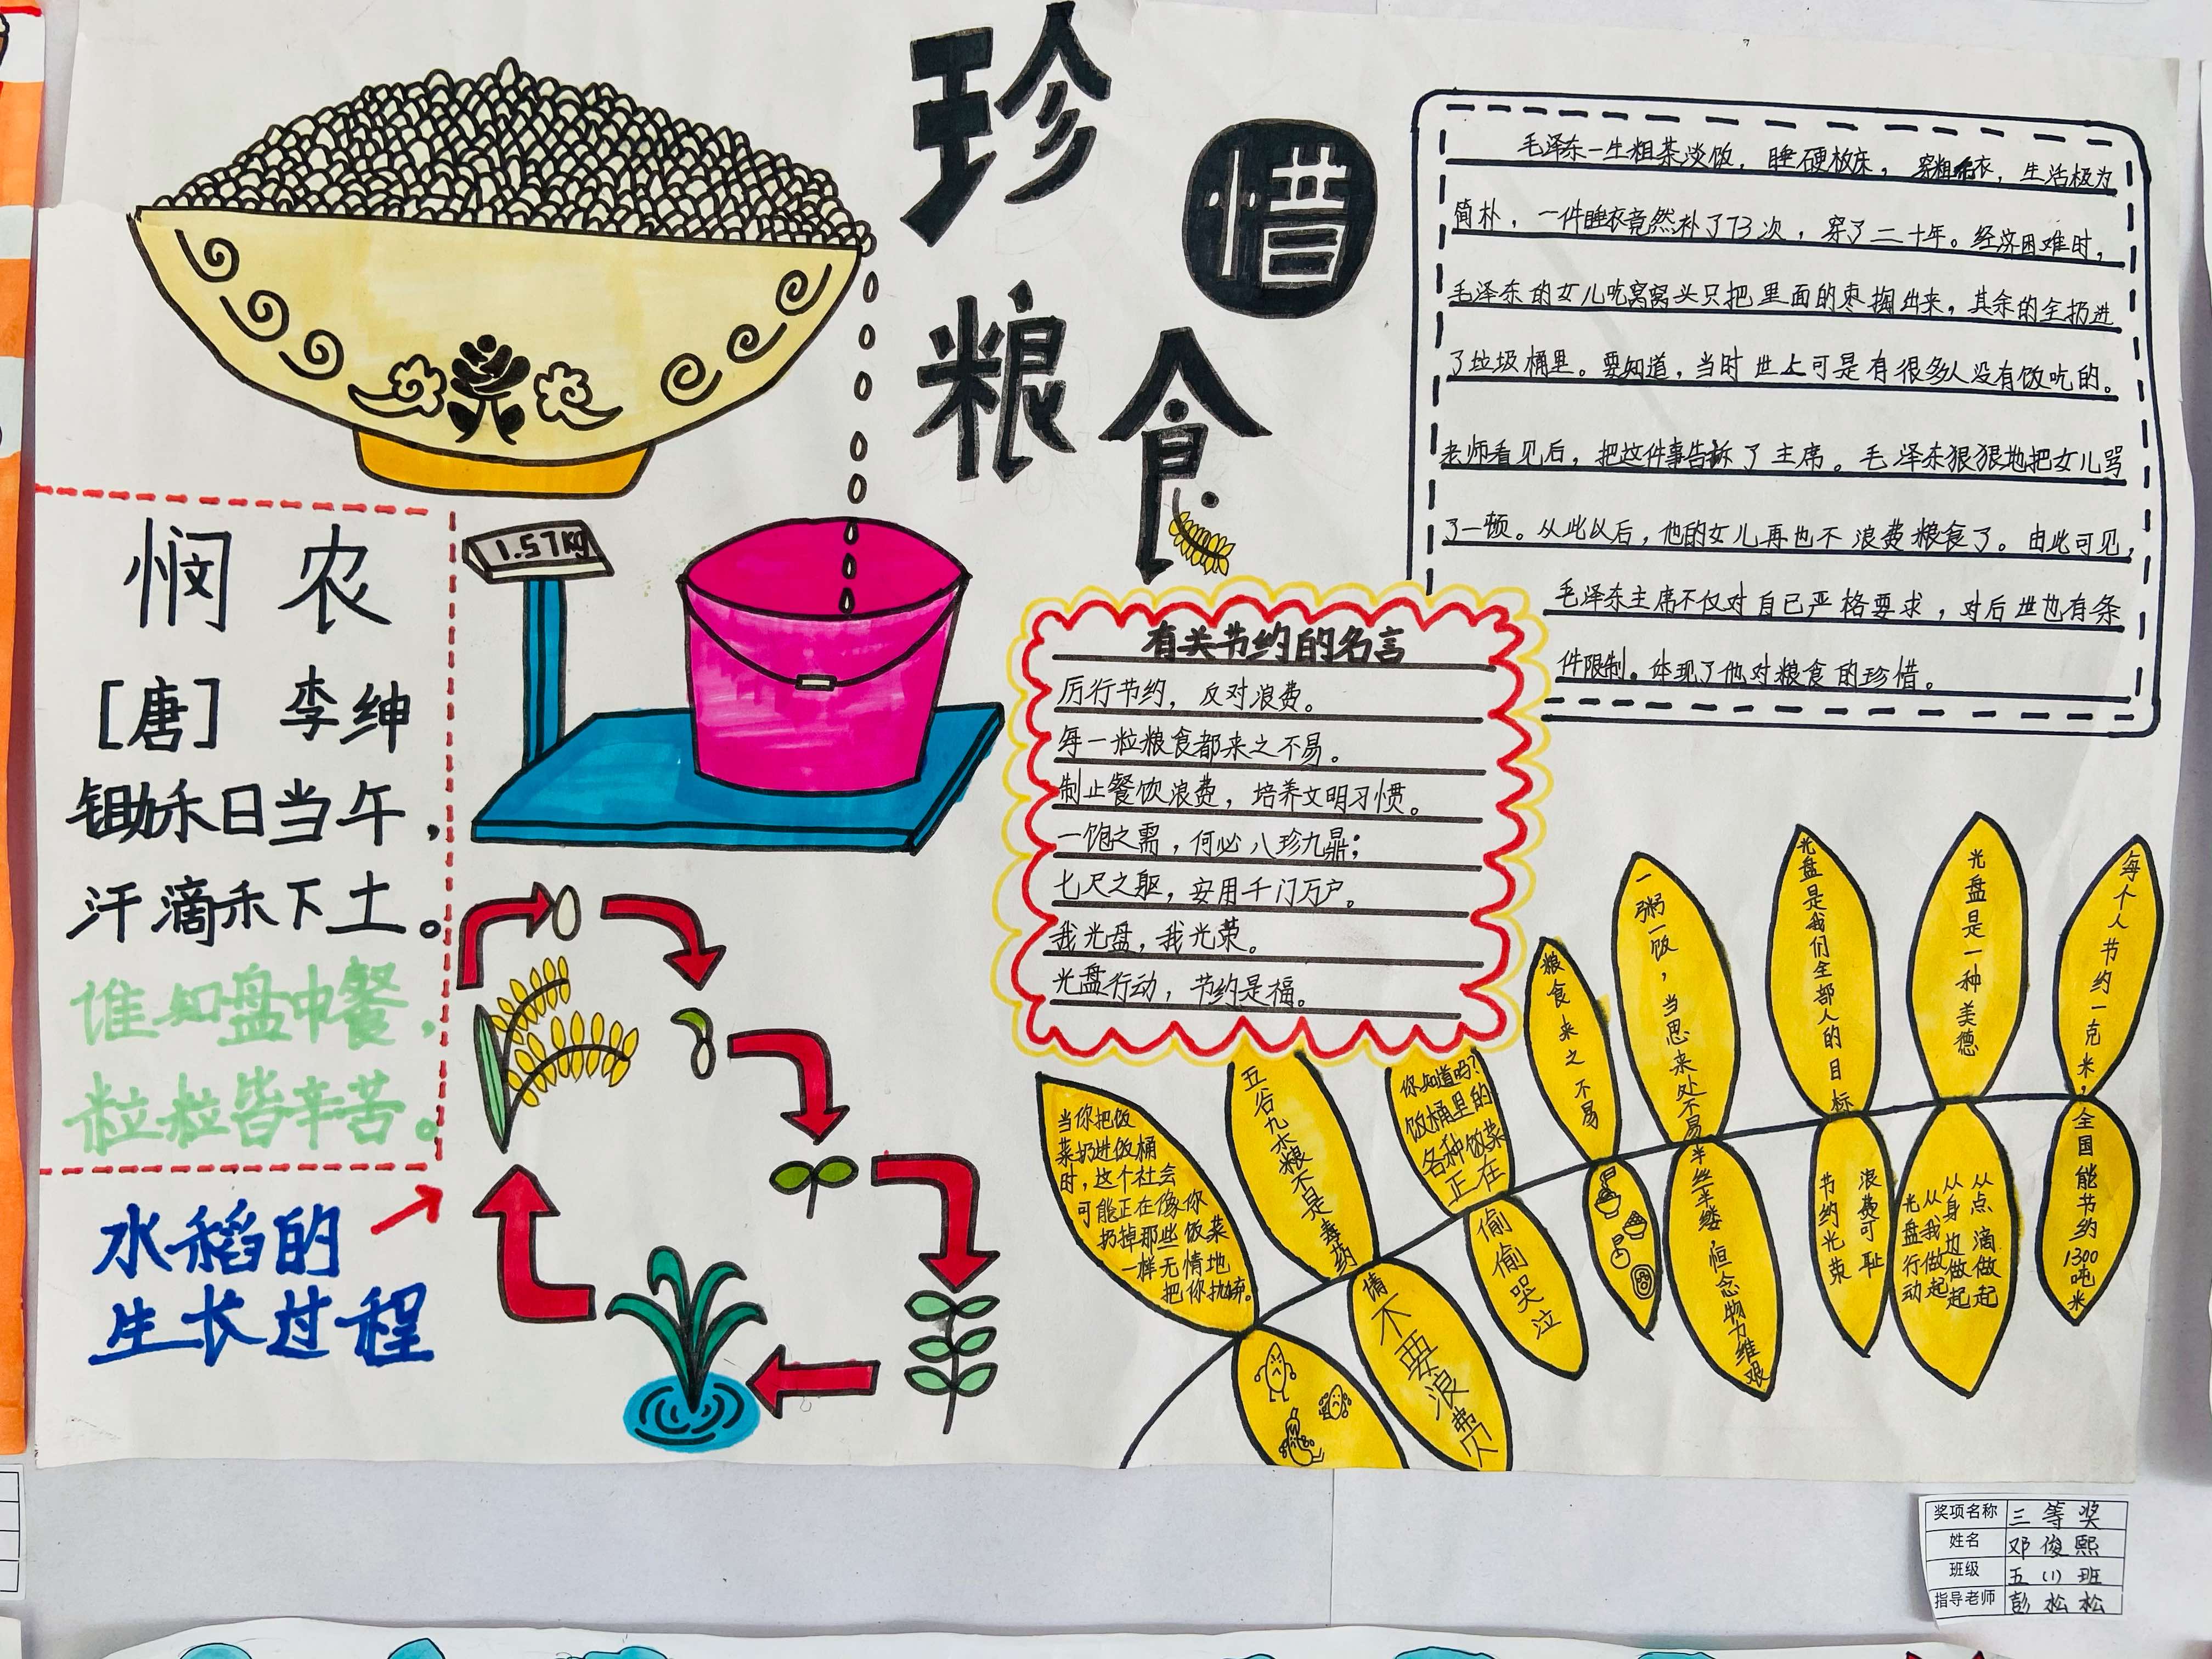 珍惜
粮食
毛泽东一生粗茶淡饭，睡硬板床，穿粗布衣，生活极为
简朴，一件睡衣竟然补了73次，穿了二十年。经济困难时，
毛泽东的女儿吃窝窝头只把里面的枣掏出来，其余的全扔进
了垃圾桶里。要知道，当时世上可是有很多人没有饭吃的。
老师看见后，把这件事告诉了主席。毛泽东狠狠地把女儿骂
了一顿。从此以后，他的女儿再也不浪费粮食了。由此可见，
毛泽东主席不仅对自己严格要求，对后世也有条
件限制。体现了他对粮食的珍惜。
悯农
[唐] 李绅
锄禾日当午，
汗滴禾下土。
谁知盘中餐，
粒粒皆辛苦。
1.57kg
水稻的
生长过程
有关节约的名言
厉行节约，反对浪费。
每一粒粮食都来之不易。
制止餐饮浪费，培养文明习惯。
一饱之需，何必八珍九鼎；
七尺之躯，安用千门万户。
我光盘，我光荣。
光盘行动，节约是福。
当你把饭
菜扔进饭桶
时，这个社会
可能正在像你
扔掉那些饭菜
一样无情地
把你抛弃。
五谷九水粮不是毒药
请不要浪费
你知道吗？
饭桶里的
各种饭菜
正在
偷偷哭泣
粮食来之不易
一粥一饭，当思来处不易
半丝半缕 恒念物力维艰
光盘是我们全部人的目标
浪费可耻
节约光荣
光盘是一种美德
从点滴做起
从身边做起
从我做起
光盘行动
每个人节约一克米，
全国能节约1300吨米
奖项名称 三等奖
姓名 邓俊熙
班级 五（1）班
指导老师 彭松松